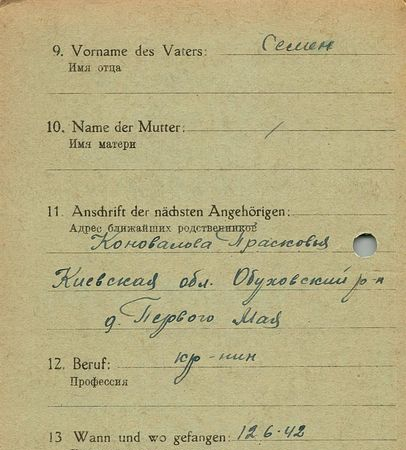 9. Vorname des Vaters: Семен
Имя отца
10. Name der Mutter: /
Имя матери
11. Anschrift der nächsten Angehörigen:
Адрес ближайших родственников
Коновалова Прасковья
Киевская обл. Обуховский р-н
д. Первого Мая
12. Beruf: кр-нин
Профессия
13 Wann und wo gefangen: 12.6.42